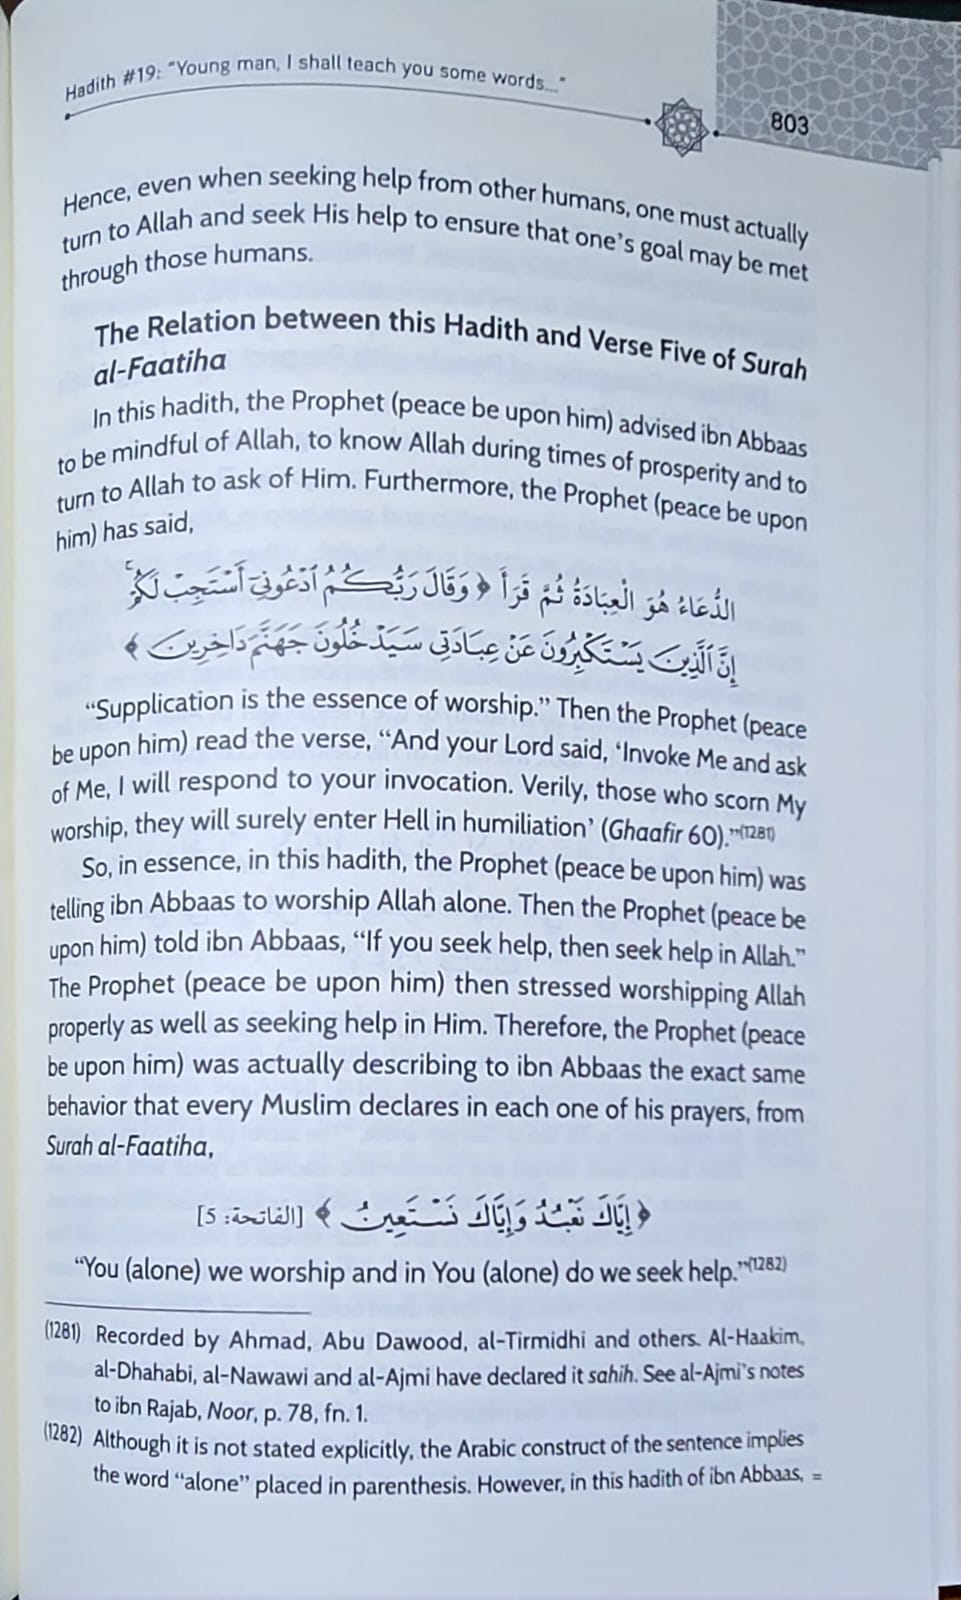 Hadith #19: "Young man, I shall teach you some words..."
803
Hence, even when seeking help from other humans, one must actually
turn to Allah and seek His help to ensure that one's goal may be met
through those humans.
The Relation between this Hadith and Verse Five of Surah
al-Faatiha
In this hadith, the Prophet (peace be upon him) advised ibn Abbaas
to be mindful of Allah, to know Allah during times of prosperity and to
turn to Allah to ask of Him. Furthermore, the Prophet (peace be upon
him) has said,
الدُّعَاءُ هُوَ الْعِبَادَةُ ثُمَّ قَرَأَ ﴿ وَقَالَ رَبُّكُمُ ٱدْعُونِىٓ أَسْتَجِبْ لَكُمْ ۚ
إِنَّ ٱلَّذِينَ يَسْتَكْبِرُونَ عَنْ عِبَادَتِى سَيَدْخُلُونَ جَهَنَّمَ دَاخِرِينَ ﴾
"Supplication is the essence of worship." Then the Prophet (peace
be upon him) read the verse, "And your Lord said, 'Invoke Me and ask
of Me, I will respond to your invocation. Verily, those who scorn My
worship, they will surely enter Hell in humiliation' (Ghaafir 60)."(1281)
So, in essence, in this hadith, the Prophet (peace be upon him) was
telling ibn Abbaas to worship Allah alone. Then the Prophet (peace be
upon him) told ibn Abbaas, "If you seek help, then seek help in Allah."
The Prophet (peace be upon him) then stressed worshipping Allah
properly as well as seeking help in Him. Therefore, the Prophet (peace
be upon him) was actually describing to ibn Abbaas the exact same
behavior that every Muslim declares in each one of his prayers, from
Surah al-Faatiha,
﴿ إِيَّاكَ نَعْبُدُ وَإِيَّاكَ نَسْتَعِينُ ﴾ [الفاتحة: 5]
"You (alone) we worship and in You (alone) do we seek help."(1282)
(1281) Recorded by Ahmad, Abu Dawood, al-Tirmidhi and others. Al-Haakim,
al-Dhahabi, al-Nawawi and al-Ajmi have declared it sahih. See al-Ajmi's notes
to ibn Rajab, Noor, p. 78, fn. 1.
(1282) Although it is not stated explicitly, the Arabic construct of the sentence implies
the word "alone" placed in parenthesis. However, in this hadith of ibn Abbaas, =